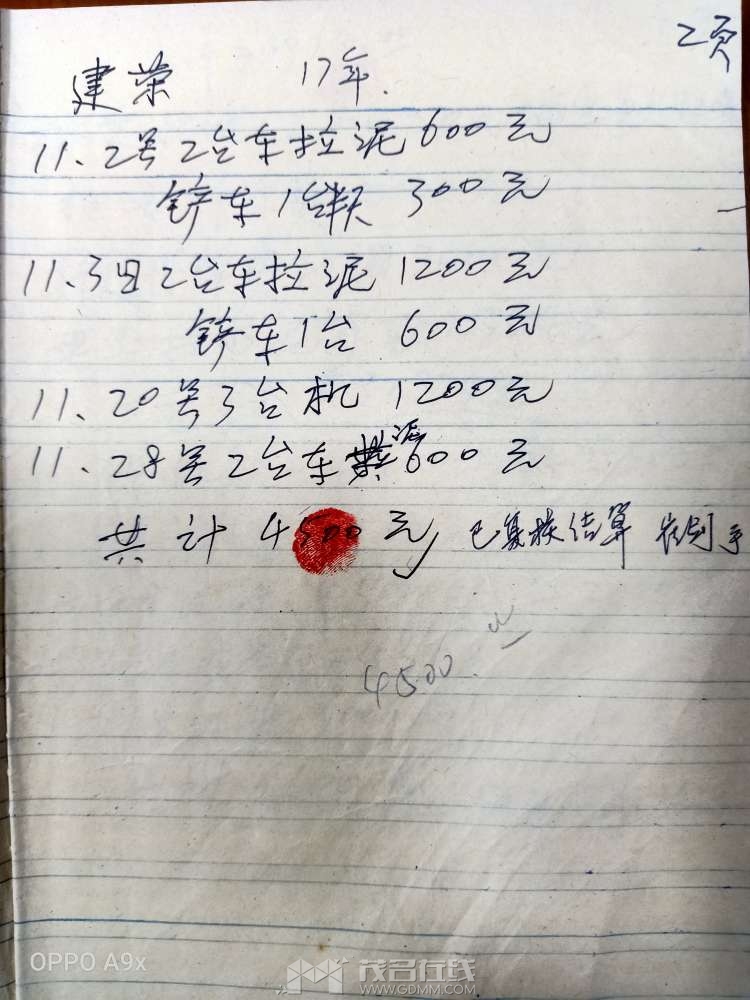 2页
建荣 17年.
11.2号2台车拉泥600元
铲车1台半天 300元
11.3日2台车拉泥1200元
铲车1台 600元
11.20号3台机1200元
11.28号2台车泥600元
共计4500元 已集族结算
4500
OPPO A9x
茂名在线
WWW.GDMM.COM